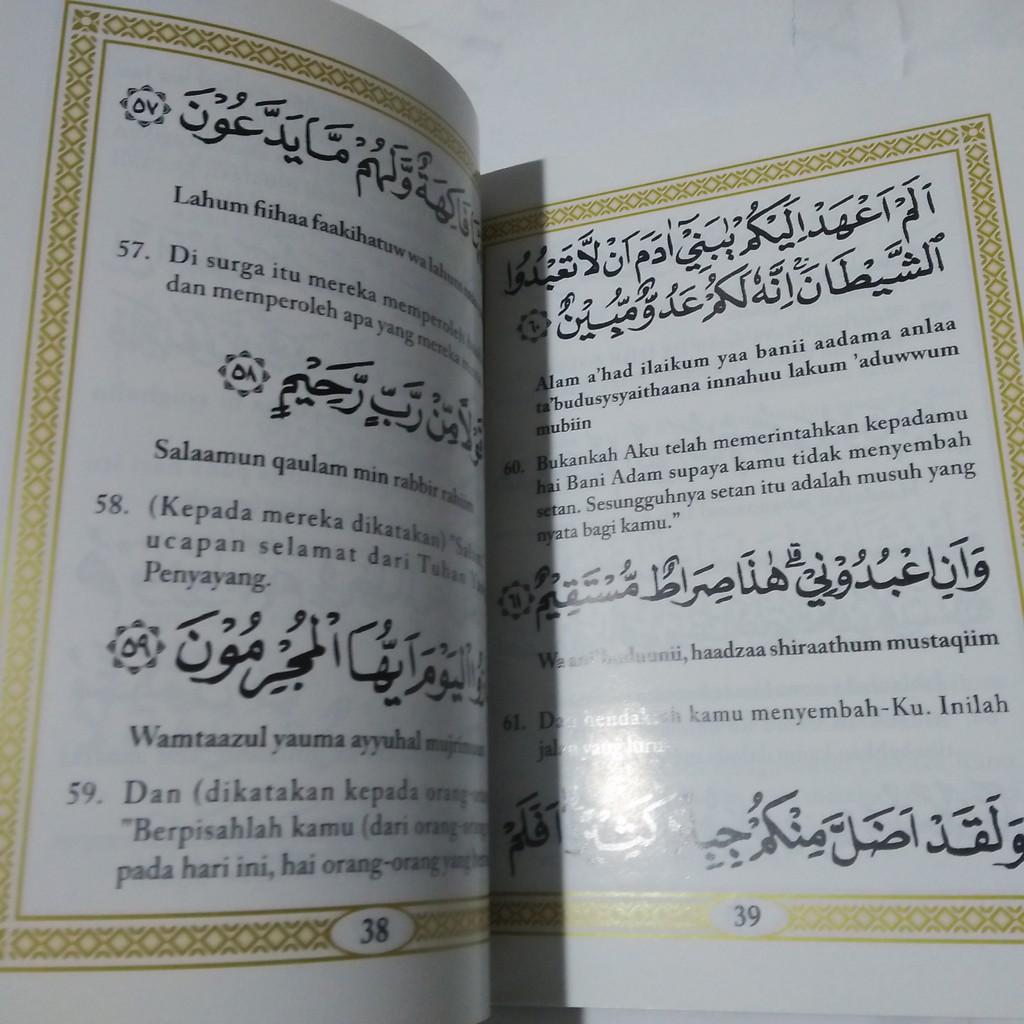 فَاكِهَةٌ وَّلَهُمْ مَّا يَدَّعُوْنَ ۝٥٧
Lahum fiihaa faakihatuw wa lahum
57. Di surga itu mereka memperoleh
dan memperoleh apa yang mereka
مِّنْ رَّبٍّ رَّحِيْمٍ ۝٥٨
Salaamun qaulam min rabbir rahiim
58. (Kepada mereka dikatakan)
ucapan selamat dari Tuhan
Penyayang.
الْيَوْمَ اَيُّهَا الْمُجْرِمُوْنَ ۝٥٩
Wamtaazul yauma ayyuhal
59. Dan (dikatakan kepada
"Berpisahlah kamu (dari orang-orang
pada hari ini, hai orang-orang yang
38
اَلَمْ اَعْهَدْ اِلَيْكُمْ يٰبَنِيْٓ اٰدَمَ اَنْ لَّا تَعْبُدُوا
الشَّيْطٰانَۚ اِنَّهٗ لَكُمْ عَدُوٌّ مُّبِيْنٌ ۝٦٠
Alam a'had ilaikum yaa banii aadama anlaa
ta'budusysyaithaana innahuu lakum 'aduwwum
mubiin
60. Bukankah Aku telah memerintahkan kepadamu
hai Bani Adam supaya kamu tidak menyembah
setan. Sesungguhnya setan itu adalah musuh yang
nyata bagi kamu."
وَاَنِ اعْبُدُوْنِيْۗ هٰذَا صِرَاطٌ مُّسْتَقِيْمٌ ۝٦١
haadzaa shiraathum mustaqiim
61. kamu menyembah-Ku. Inilah
yang
وَلَقَدْ اَضَلَّ مِنْكُمْ اَفَلَمْ
39